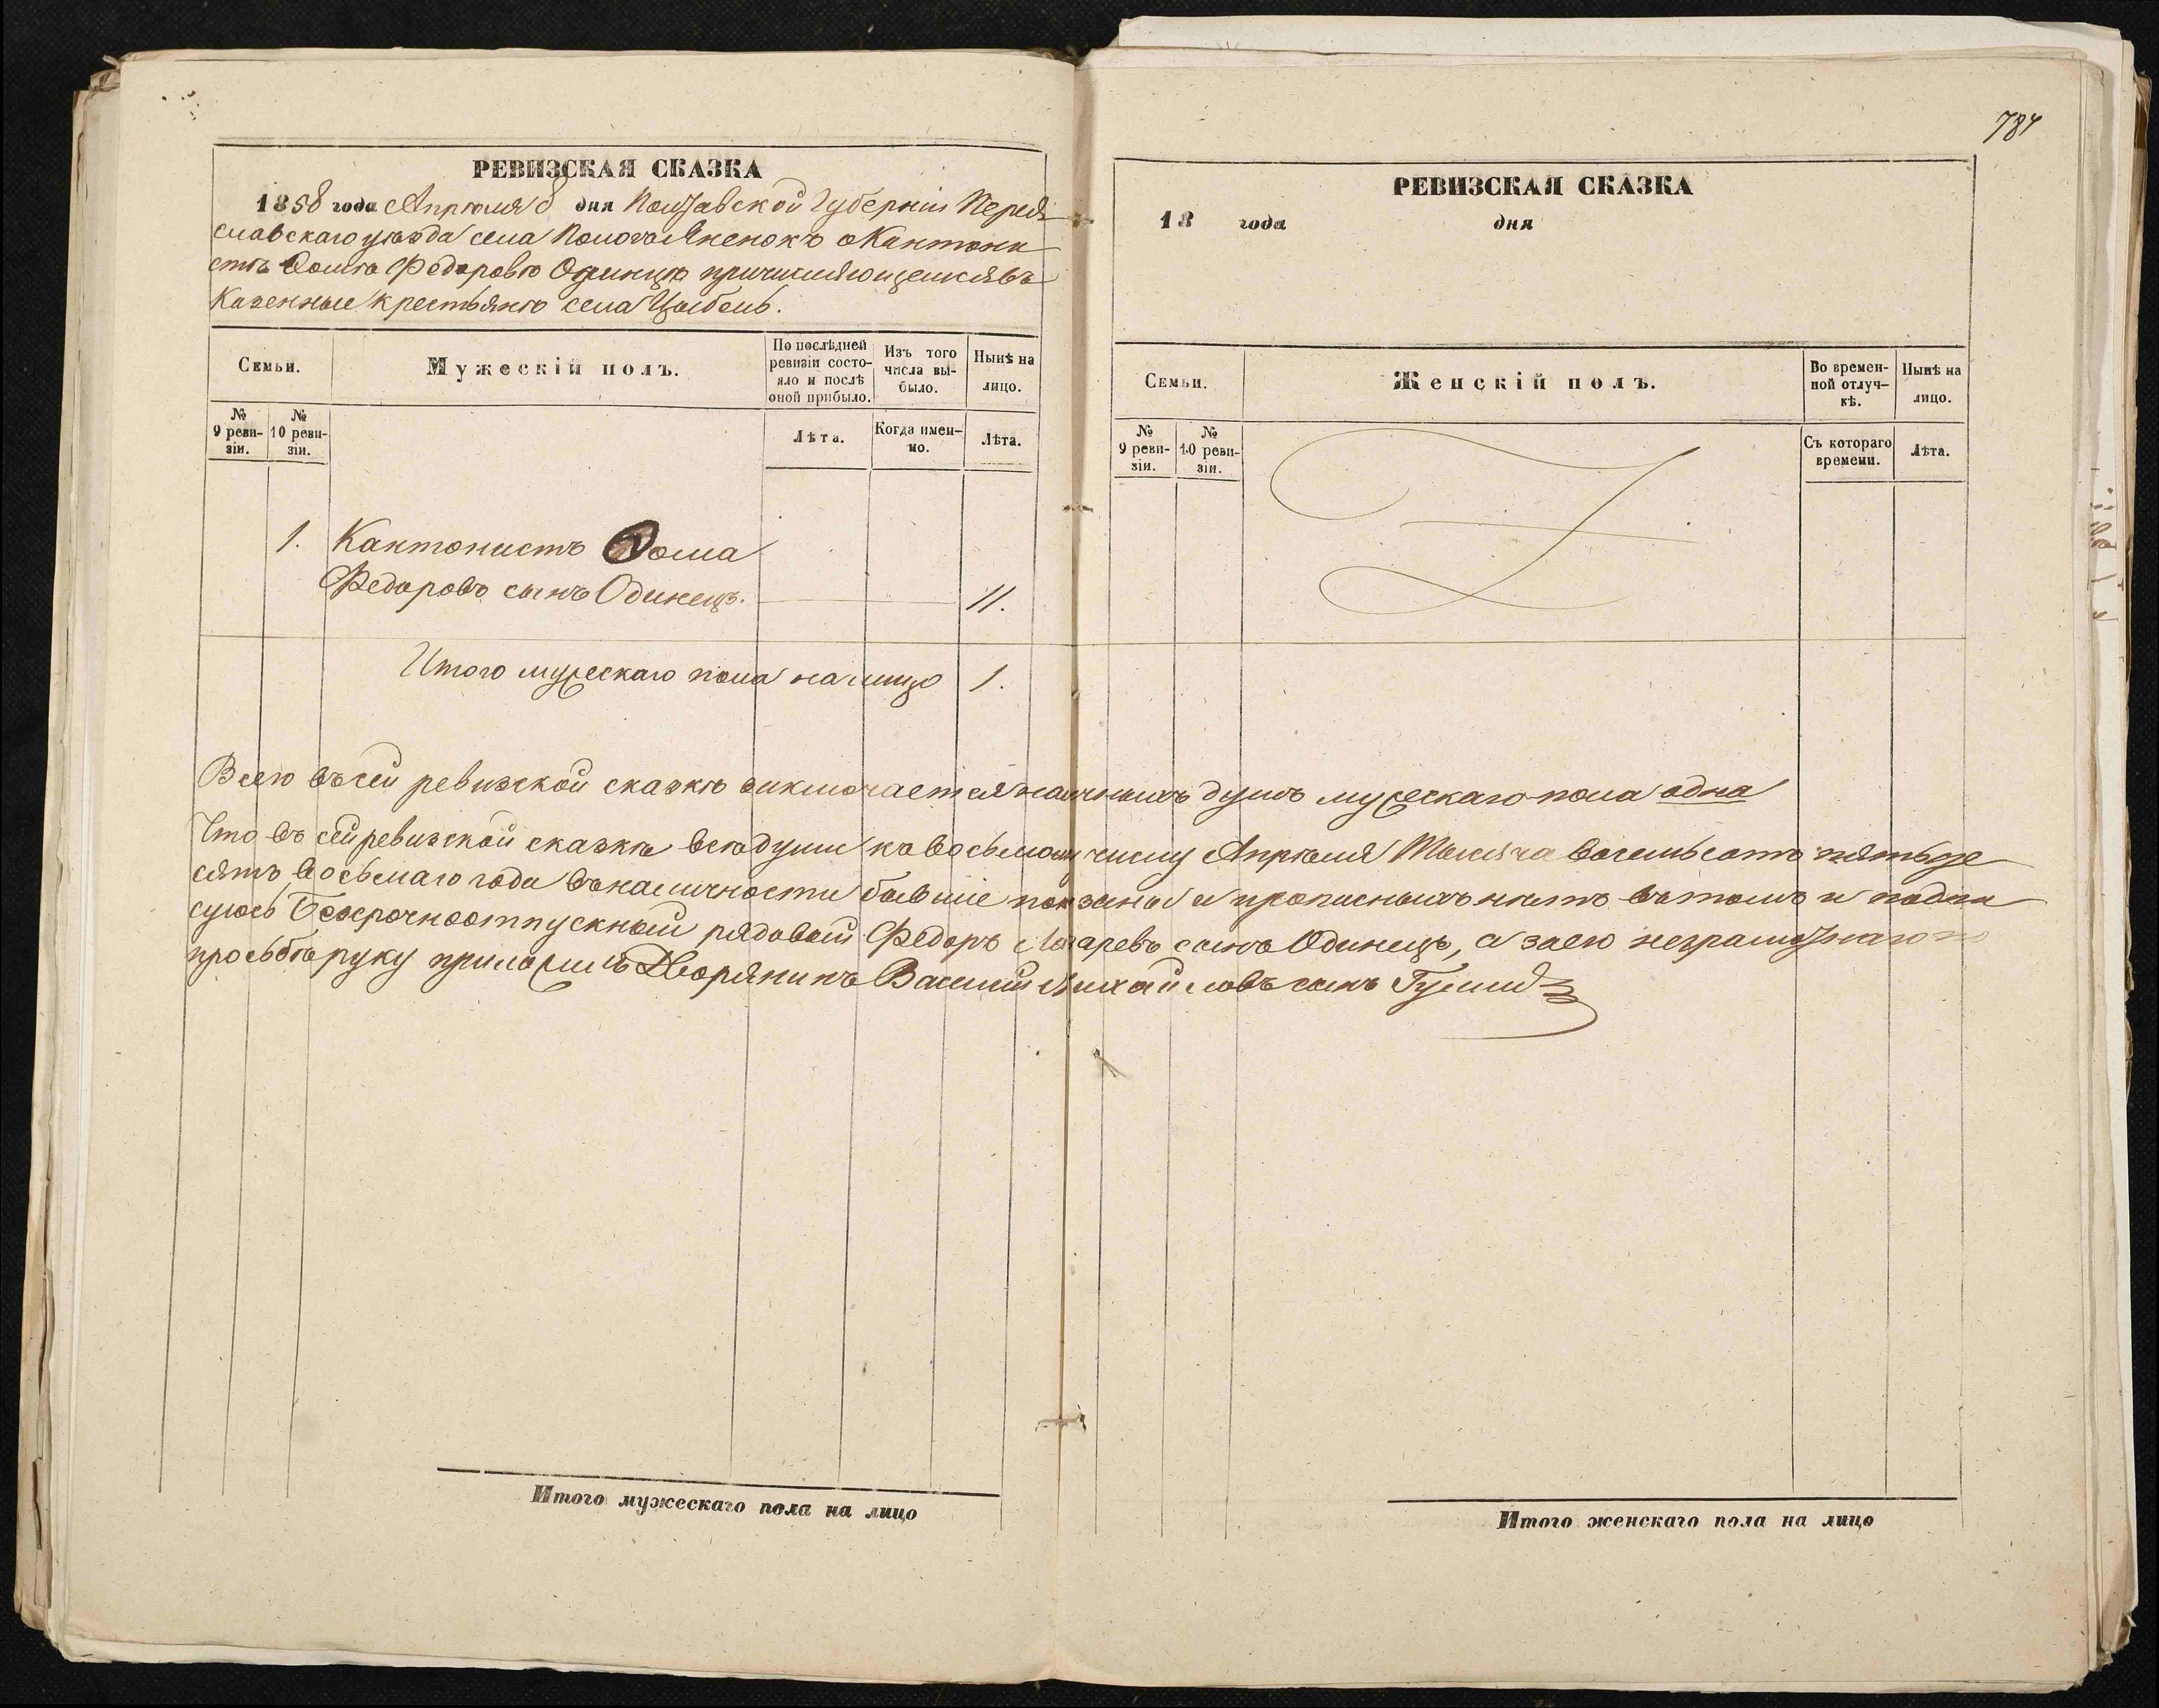 784
РЕВИЗСКАЯ СКАЗКА
1858 года Апрѣля 8 дня Полтавской Губерніи Перея
славскаго уѣзда села Пологъ Яненокъ о Кантони
стѣ Ѳомѣ Федоровѣ Одинцѣ причисляющемся въ
Казенные крестьяне села Цыбель.
Семьи.
Мужескій полъ.
По послѣдней ревизіи состо-яло и послѣ оной прибыло.
Изъ того числа вы-было.
Нынѣ на лицо.
№ 9 реви-зіи.
№ 10 реви-зіи.
Лѣта.
Когда имен-но.
Лѣта.
1. Кантонистъ Ѳома
Федоровъ сынъ Одинецъ. 11.
Итого мужескаго пола на лицо 1.
РЕВИЗСКАЯ СКАЗКА
18 года дня
Семьи.
Женскій полъ.
Во времен-ной отлуч-кѣ.
Нынѣ на лицо.
№ 9 реви-зіи.
№ 10 реви-зіи.
Съ котораго времени.
Лѣта.
Всего въ сей ревизской сказкѣ заключается наличныхъ душъ мужескаго пола одна
Что въ сей ревизской сказкѣ всѣ души къ восьмому числу Апрѣля Тысяча восемьсотъ пятьде
сятъ восьмаго года въ наличности бывшіе показаны и прописныхъ нѣтъ въ томъ и подпи
суюсь Безсрочноотпускный рядовый Федоръ Лазаревъ сынъ Одинецъ, а за его неграмотнаго по
прозьбѣ руку приложилъ Дворянинъ Василий Михайловъ сынъ
Итого мужескаго пола на лицо
Итого женскаго пола на лицо